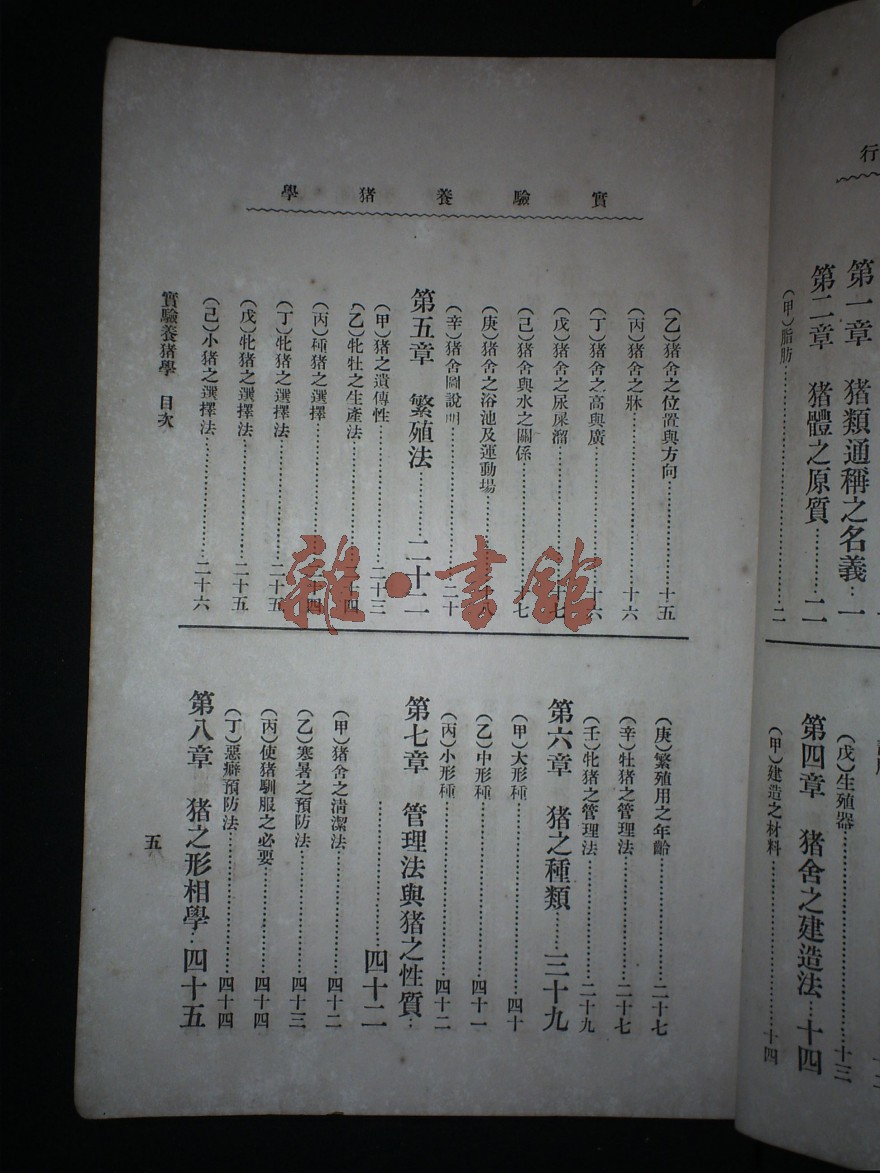 行
第一章　猪類通稱之名義…一
第二章　猪體之原質………二
（甲）脂肪………二
（戊）生殖器………十三
第四章　猪舍之建造法…十四
（甲）建造之材料………十四
實驗養猪學
（乙）猪舍之位置與方向………十五
（丙）猪舍之牀………十六
（丁）猪舍之高與廣………十六
（戊）猪舍之尿屎溜………十七
（己）猪舍與水之關係………十七
（庚）猪舍之浴池及運動場………十八
（辛）猪舍圖說明………二十
第五章　繁殖法………二十二
（甲）猪之遺傳性………二十三
（乙）牝牡之生產法………二十四
（丙）種猪之選擇………二十四
（丁）牝猪之選擇法………二十五
（戊）牝猪之選擇法………二十五
（己）小猪之選擇法………二十六
（庚）繁殖用之年齡………二十七
（辛）牡猪之管理法………二十七
（壬）牝猪之管理法………二十九
第六章　猪之種類………三十九
（甲）大形種………四十
（乙）中形種………四十一
（丙）小形種………四十二
第七章　管理法與猪之性質…
………四十二
（甲）猪舍之淸潔法………四十二
（乙）寒暑之預防法………四十三
（丙）使猪馴服之必要………四十四
（丁）惡癖預防法………四十四
第八章　猪之形相學…四十五
實驗養猪學　目次
五
雜·書館